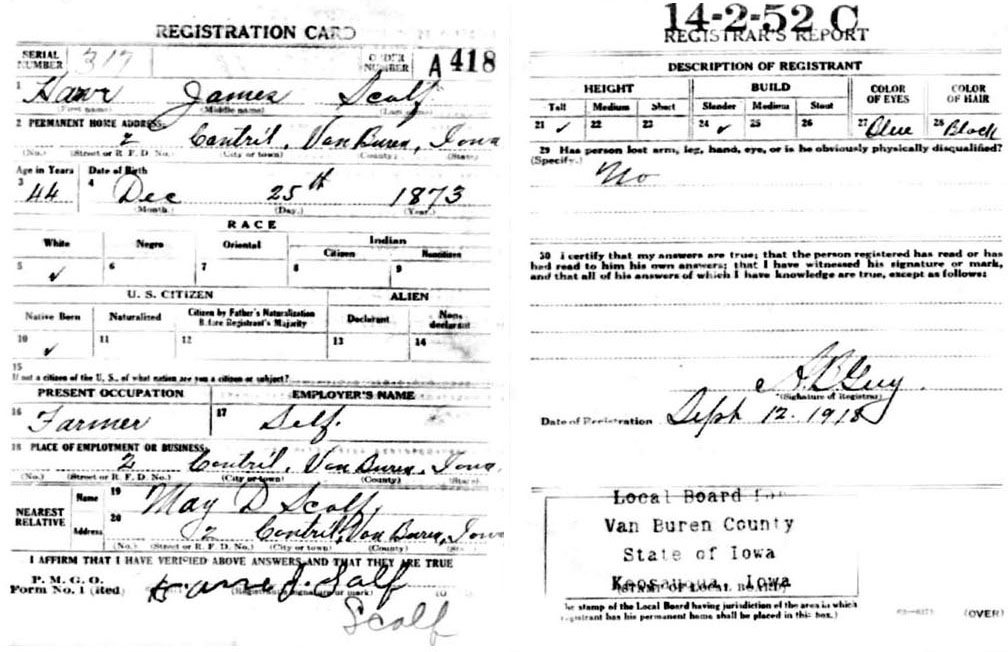 REGISTRATION CARD
SERIAL NUMBER 317 ORDER NUMBER A 418
1 James Scolf
(First name) (Middle name) (Last name)
2 PERMANENT HOME ADDRESS:
2 Cantril, Van Buren, Iowa
(No.) (Street or R. F. D. No.) (City or town) (County) (State)
Age in Years Date of Birth
3 44 4 Dec 25th 1873
(Month.) (Day.) (Year.)
RACE
White Negro Oriental Indian
Citizen
5 ✓ 6 7 8 9
U. S. CITIZEN ALIEN
Native Born Naturalized Citizen by Father's Naturalization Before Registrant's Majority Declarant Non-declarant
10 ✓ 11 12 13 14
15
If not a citizen of the U. S., of what nation are you a citizen or subject?
PRESENT OCCUPATION EMPLOYER'S NAME
16 Farmer 17 Self.
18 PLACE OF EMPLOYMENT OR BUSINESS:
2 Cantril, Van Buren, Iowa
(No.) (Street or R. F. D. No.) (City or town) (County) (State)
NEAREST RELATIVE Name 19 May D Scolf
Address 20 2 Cantril, Van Buren, Iowa
(No.) (Street or R. F. D. No.) (City or town) (County)
I AFFIRM THAT I HAVE VERIFIED ABOVE ANSWERS AND THAT THEY ARE TRUE
P. M. G. O.
Form No. 1
(Registrant's signature or mark)
Scolf
14-2-52 C
REGISTRAR'S REPORT
DESCRIPTION OF REGISTRANT
HEIGHT BUILD COLOR OF EYES COLOR OF HAIR
Tall Medium Short Slender Medium Stout
21 ✓ 22 23 24 ✓ 25 26 27 Blue 28 Black
29 Has person lost arm, leg, hand, eye, or is he obviously physically disqualified?
(Specify.) No
30 I certify that my answers are true; that the person registered has read or has
had read to him his own answers; that I have witnessed his signature or mark,
and that all of his answers of which I have knowledge are true, except as follows:
(Signature of Registrar)
Date of Registration Sept 12. 1918
Local Board for
Van Buren County
State of Iowa
Keosauqua, Iowa
(STAMP OF LOCAL BOARD)
The stamp of the Local Board having jurisdiction of the area in which
registrant has his permanent home shall be placed in this box.)
(OVER)